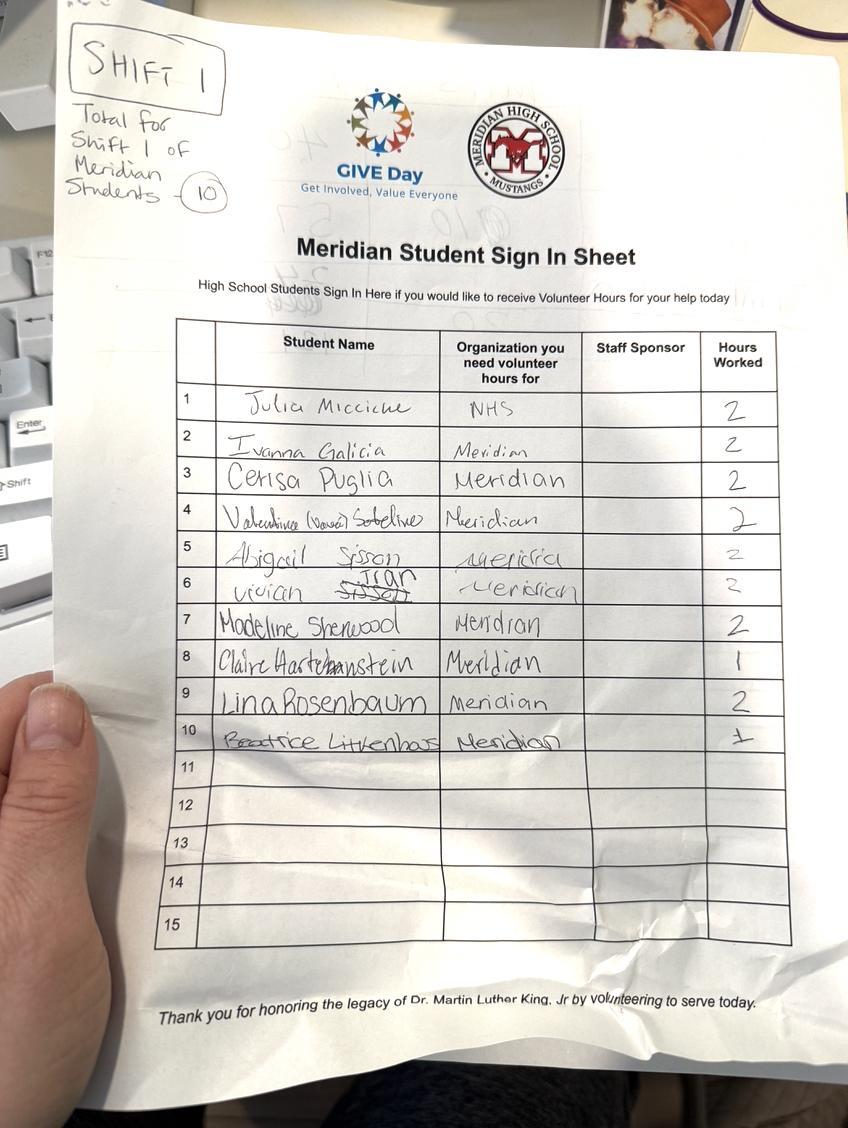 SHIFT 1
Total for
Shift 1 of
Meridian
Students - 10
GIVE Day
Get Involved, Value Everyone
MERIDIAN HIGH SCHOOL
M
MUSTANGS
Meridian Student Sign In Sheet
High School Students Sign In Here if you would like to receive Volunteer Hours for your help today
Student Name Organization you need volunteer hours for Staff Sponsor Hours Worked
1 Julia Micciche NHS 2
2 Ivanna Galicia Meridian 2
3 Cerisa Puglia Meridian 2
4 Meridian 2
5 Abigail Sisson Meridia 2
6 Vivian Tran Meridian 2
7 Madeline Sherwood Meridian 2
8 Claire Meridian 1
9 Lina Rosenbaum Meridian 2
10 Beatrice Litkenhaus Meridian 1
11
12
13
14
15
Thank you for honoring the legacy of Dr. Martin Luther King, Jr by volunteering to serve today.
F12
Enter
Shift